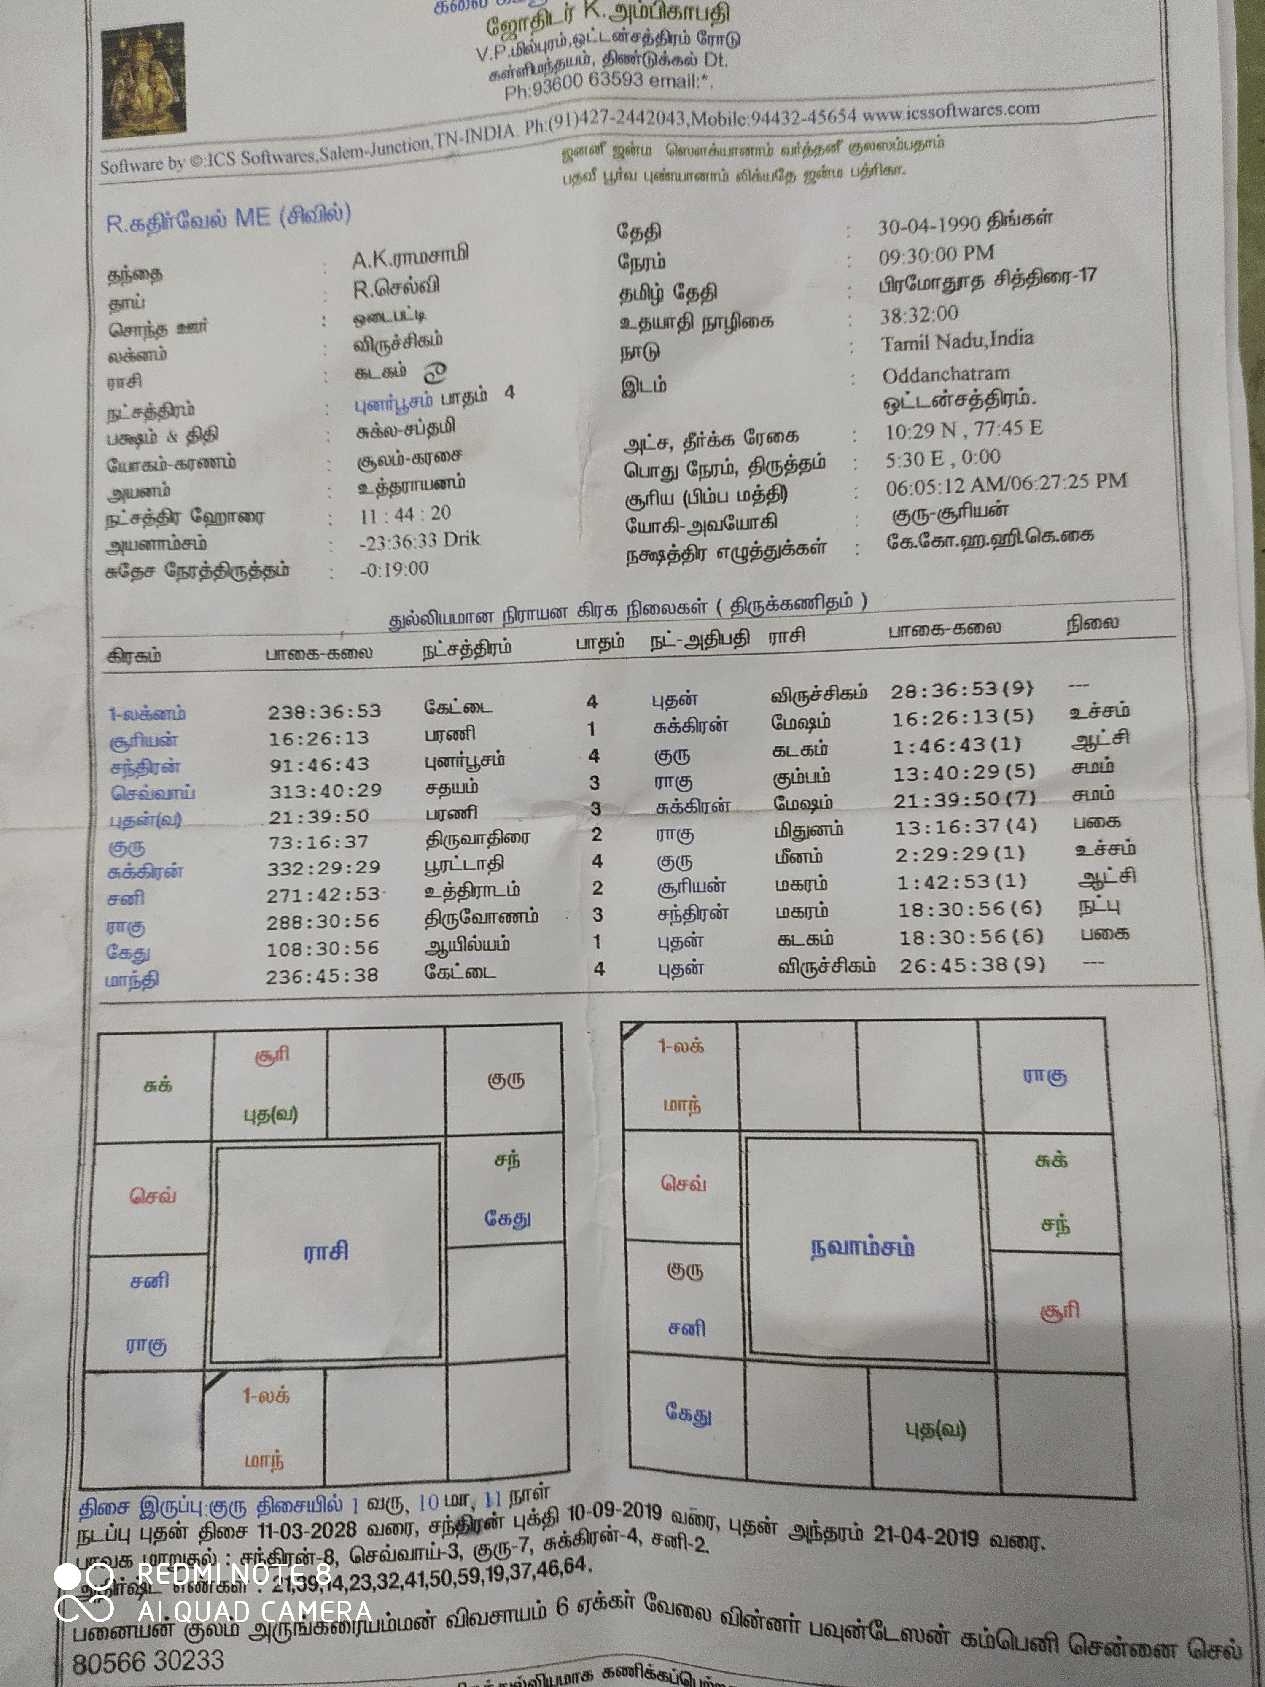 ஜோதிடர் K.அம்பிகாபதி
V.P.மில்புரம்,ஒட்டன்சத்திரம் ரோடு
கள்ளிமந்தயம், திண்டுக்கல் Dt.
Ph:93600 63593 email:*.
Software by ©:ICS Softwares,Salem-Junction,TN-INDIA. Ph:(91)427-2442043,Mobile:94432-45654 www.icssoftwares.com
ஜனனீ ஜன்ம ஸௌக்யானாம் வர்த்தனீ குலஸம்பதாம்
பதவீ பூர்வ புண்யானாம் லிக்யதே ஜன்ம பத்ரிகா.
R.கதிர்வேல் ME (சிவில்)
தந்தை : A.K.ராமசாமி
தாய் : R.செல்வி
சொந்த ஊர் : ஓடைபட்டி
லக்னம் : விருச்சிகம்
ராசி : கடகம்
நட்சத்திரம் : புனர்பூசம் பாதம் 4
பக்ஷம் & திதி : சுக்ல-சப்தமி
யோகம்-கரணம் : சூலம்-கரசை
அயனம் : உத்தராயனம்
நட்சத்திர ஹோரை : 11 : 44 : 20
அயனாம்சம் : -23:36:33 Drik
சுதேச நேரத்திருத்தம் : -0:19:00
தேதி : 30-04-1990 திங்கள்
நேரம் : 09:30:00 PM
தமிழ் தேதி : பிரமோதூத சித்திரை-17
உதயாதி நாழிகை : 38:32:00
நாடு : Tamil Nadu,India
இடம் : Oddanchatram
ஒட்டன்சத்திரம்.
அட்ச, தீர்க்க ரேகை : 10:29 N , 77:45 E
பொது நேரம், திருத்தம் : 5:30 E , 0:00
சூரிய (பிம்ப மத்தி) : 06:05:12 AM/06:27:25 PM
யோகி-அவயோகி : குரு-சூரியன்
நக்ஷத்திர எழுத்துக்கள் : கே.கோ.ஹ.ஹி.கெ.கை
துல்லியமான நிராயன கிரக நிலைகள் ( திருக்கணிதம் )
கிரகம் பாகை-கலை நட்சத்திரம் பாதம் நட்-அதிபதி ராசி பாகை-கலை நிலை
1-லக்னம் 238:36:53 கேட்டை 4 புதன் விருச்சிகம் 28:36:53(9) ---
சூரியன் 16:26:13 பரணி 1 சுக்கிரன் மேஷம் 16:26:13(5) உச்சம்
சந்திரன் 91:46:43 புனர்பூசம் 4 குரு கடகம் 1:46:43(1) ஆட்சி
செவ்வாய் 313:40:29 சதயம் 3 ராகு கும்பம் 13:40:29(5) சமம்
புதன்(வ) 21:39:50 பரணி 3 சுக்கிரன் மேஷம் 21:39:50(7) சமம்
குரு 73:16:37 திருவாதிரை 2 ராகு மிதுனம் 13:16:37(4) பகை
சுக்கிரன் 332:29:29 பூரட்டாதி 4 குரு மீனம் 2:29:29(1) உச்சம்
சனி 271:42:53 உத்திராடம் 2 சூரியன் மகரம் 1:42:53(1) ஆட்சி
ராகு 288:30:56 திருவோணம் 3 சந்திரன் மகரம் 18:30:56(6) நட்பு
கேது 108:30:56 ஆயில்யம் 1 புதன் கடகம் 18:30:56(6) பகை
மாந்தி 236:45:38 கேட்டை 4 புதன் விருச்சிகம் 26:45:38(9) ---
சுக்
சூரி
புத(வ)
குரு
செவ்
சந்
கேது
ராசி
சனி
ராகு
1-லக்
மாந்
1-லக்
மாந்
ராகு
செவ்
சுக்
சந்
நவாம்சம்
குரு
சனி
சூரி
கேது
புத(வ)
திசை இருப்பு:குரு திசையில் 1 வரு, 10 மா, 11 நாள்
நடப்பு புதன் திசை 11-03-2028 வரை, சந்திரன் புக்தி 10-09-2019 வரை, புதன் அந்தரம் 21-04-2019 வரை.
பாவக மாறுதல் : சந்திரன்-8, செவ்வாய்-3, குரு-7, சுக்கிரன்-4, சனி-2.
அதிர்ஷ்ட எண்கள் : 21,39,14,23,32,41,50,59,19,37,46,64.
பனையன் குலம் அருங்கரையம்மன் விவசாயம் 6 ஏக்கர் வேலை வின்னர் பவுன்டேஸன் கம்பெனி சென்னை செல்
80566 30233
REDMI NOTE 8
AI QUAD CAMERA